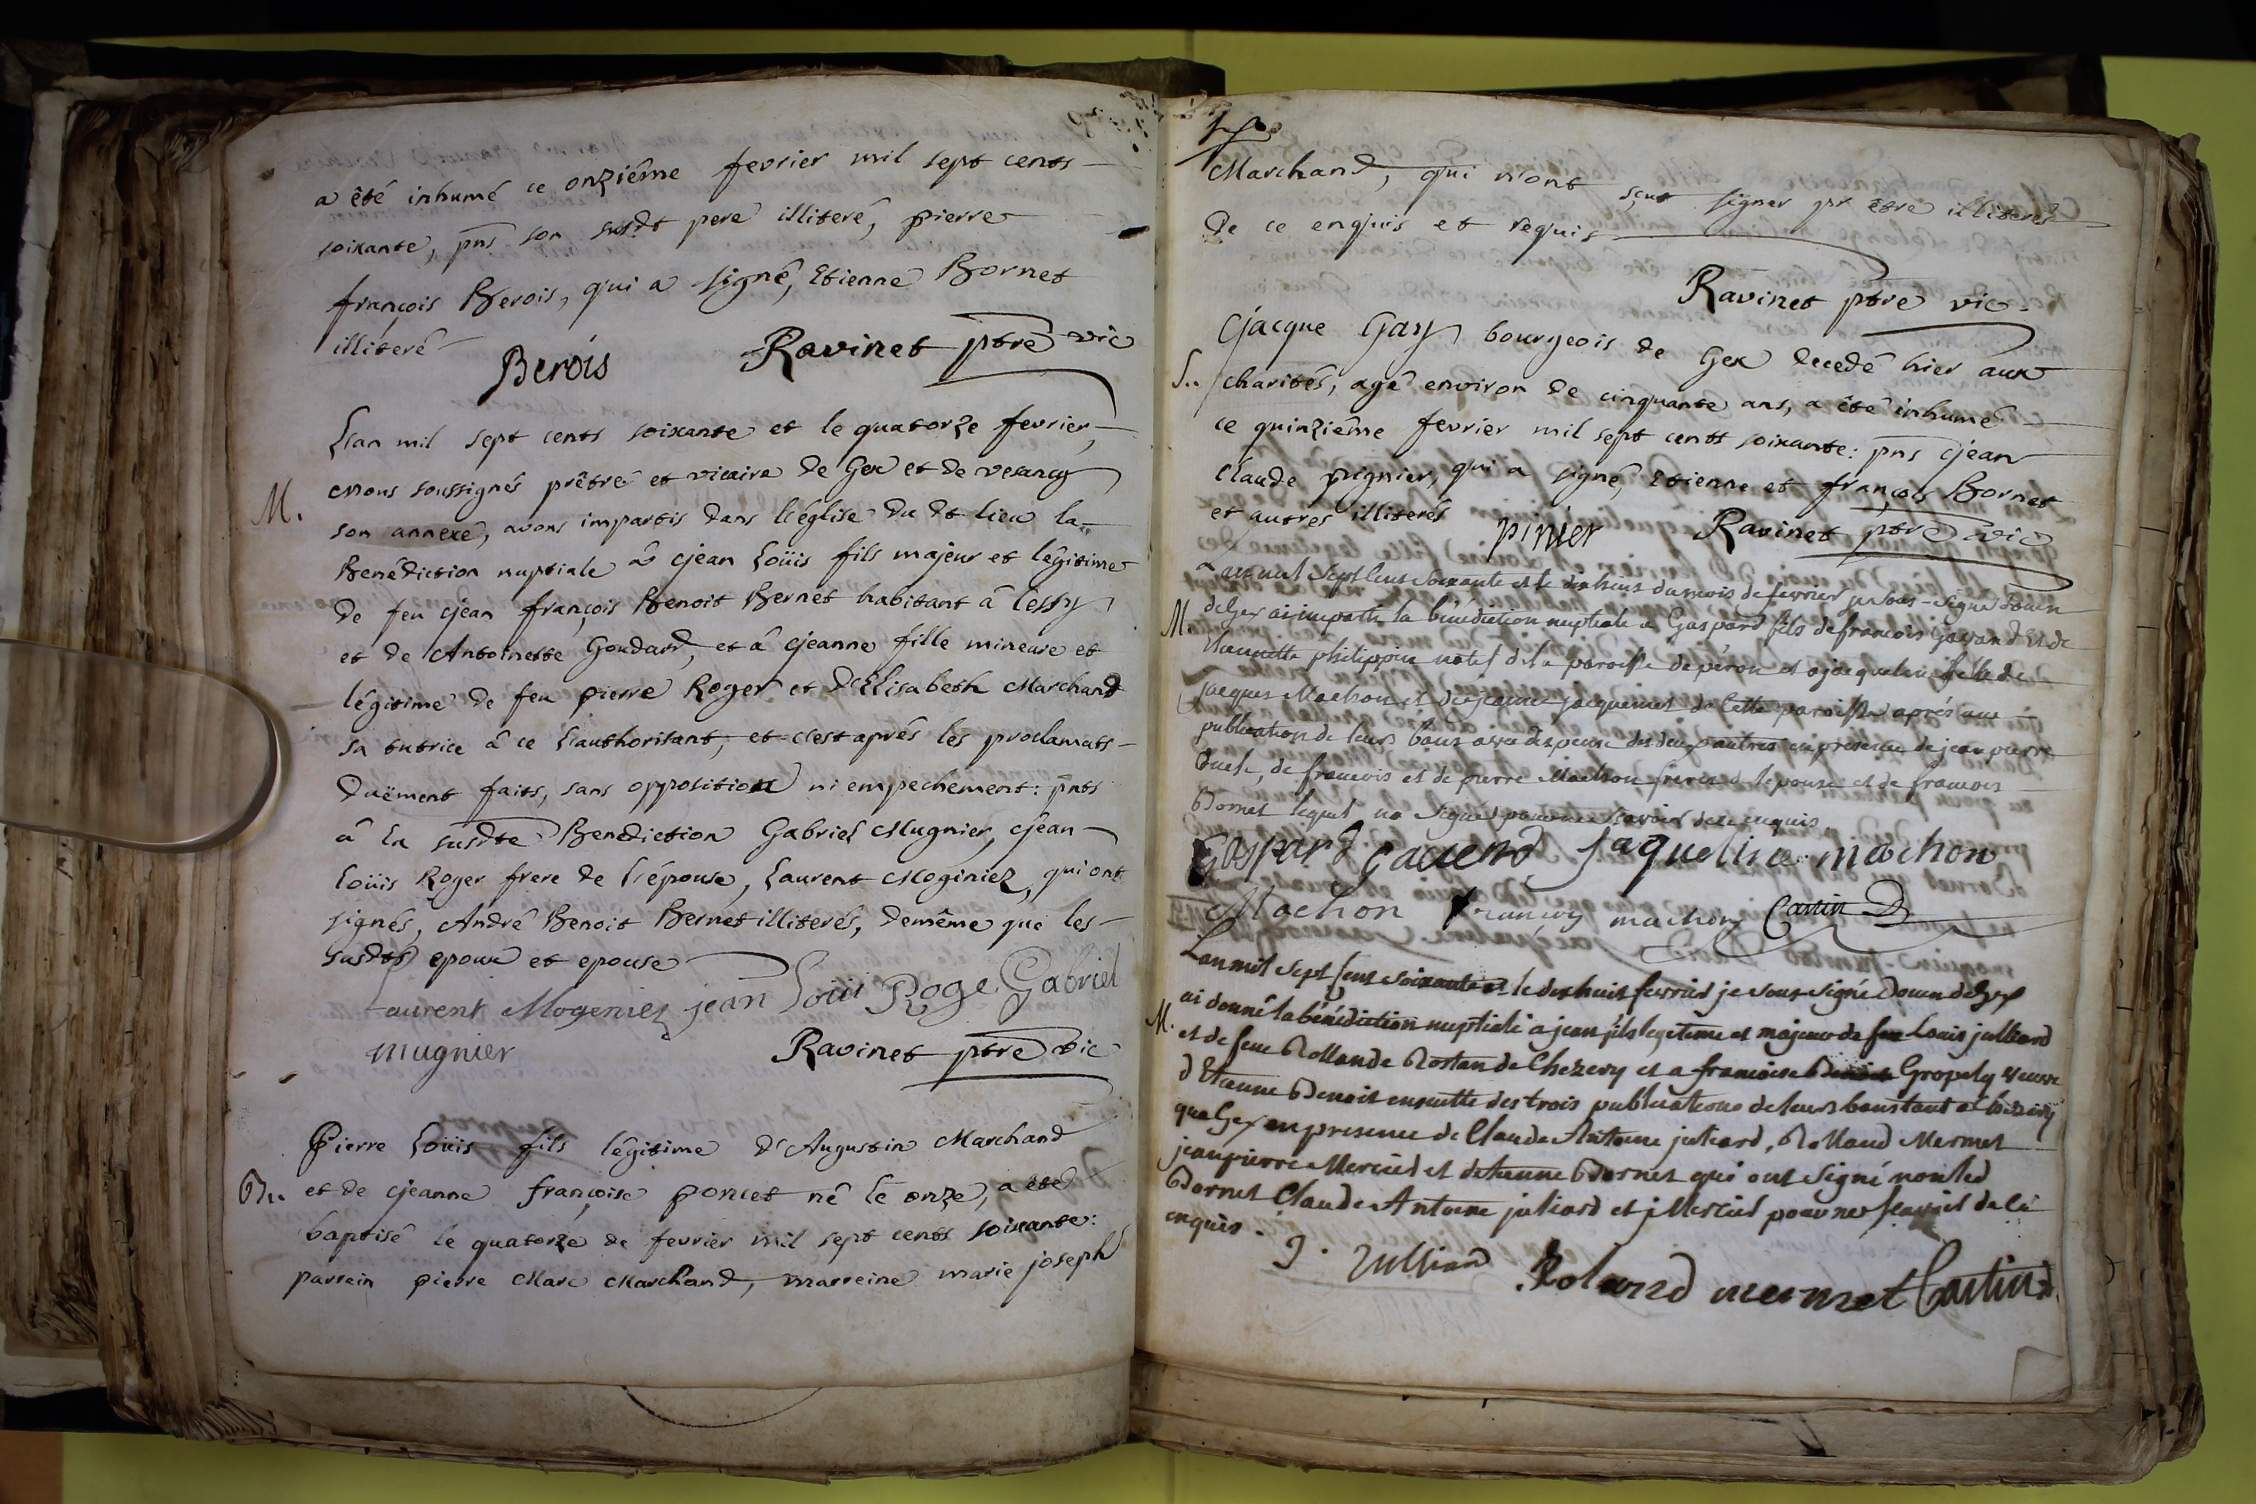 a été inhumé ce onziême fevrier mil sept cents
soixante, pns son susdt pere illiteré, pierre
françois Berois, qui a signé, Etienne Bornet
illiteré
Berois Ravinet ptre vic
L'an mil sept cents soixante et le quatorze fevrier,
nous soussignés prêtre et vicaire de Gex et de vesancy
M. son annexe, avons impartis dans l'église du dt lieu la
Benédiction nuptiale à jean Loüis fils majeur et légitime
de feu jean françois Benoit Bernet habitant â Cessy
et de Antoinette Goudard, et â jeanne fille mineure et
légitime de feu pierre Roger et d'Elisabeth Marchand
sa tutrice â ce l'authorisant, et c'est aprés les proclamats
duëment faits, sans opposition ni empechement: pnts
â la susdte Benediction Gabriel Mugnier, jean
Loüis Roger frere de l'épouse, Laurent Moginiez, qui ont
signés, André Benoit Bernet illiterés, demême que les
susdts epoux et epouse
Laurent Mogeniez jean Loüi Roge Gabriel
mugnier Ravinet ptre vic
Pierre Loüis fils légitime d'Augustin Marchand
B.. et de jeanne françoise poncet né le onze, a été
baptisé le quatorze de fevrier mil sept cents soixante:
parrein pierre Marc Marchand, marreine marie joseph
Marchand, qui n'ont sçut signer pr être illiterés
de ce enquis et requis
Ravinet ptre vic.
jacque Gay bourgeois de Gex decedé hier aux
S.. charités, agé environ de cinquante ans, a êté inhumé
ce quinziême fevrier mil sept cents soixante: pns jean
Claude pignier, qui a signé, Etienne et françois Bornet
et autres illiterés pinier Ravinet ptre vic
Lan mil sept cent soixante et le dixhuit du mois de fevrier je sous-signé doien
M. de Gex ai imparti la bénédiction nuptiale a Gaspard fils de francois Gavand et de
philippine natif de la paroisse de péron et a jacqueline fille de
jacques Machon et de jeanne jacquemet de cette paroisse aprés une
publication de leurs bans avec dispense des deux autres en presence de jean pierre
de francois et de pierre Machon freres d lepouse et de francois
Bornet lequel na signé pour ne scavoir de ce enquis
Gaspard gavend jaqueline machon
Machon françois machon Castin D
Lan mil sept cent soixante et le dixhuit fevrier je sous signé Doien de Gex
M. ai donné la bénédiction nuptiale a jean fils legitime et majeur de feu Louis julliard
et de feue Rollande Rostan de Chezery et a francoise Gropely veuve
d'Etienne Benoit ensuitte des trois publications de leurs bans tant a Chezery
qua Gex en presence de Claude Antoine juliard, Rolland Mermet
jean pierre Mercier et detienne Bornet qui ont signé non led
Bornet Claude Antoine juliard et j Mercier pour ne scavoir de ce
enquis. J. Julliard Roland mermet Castin D